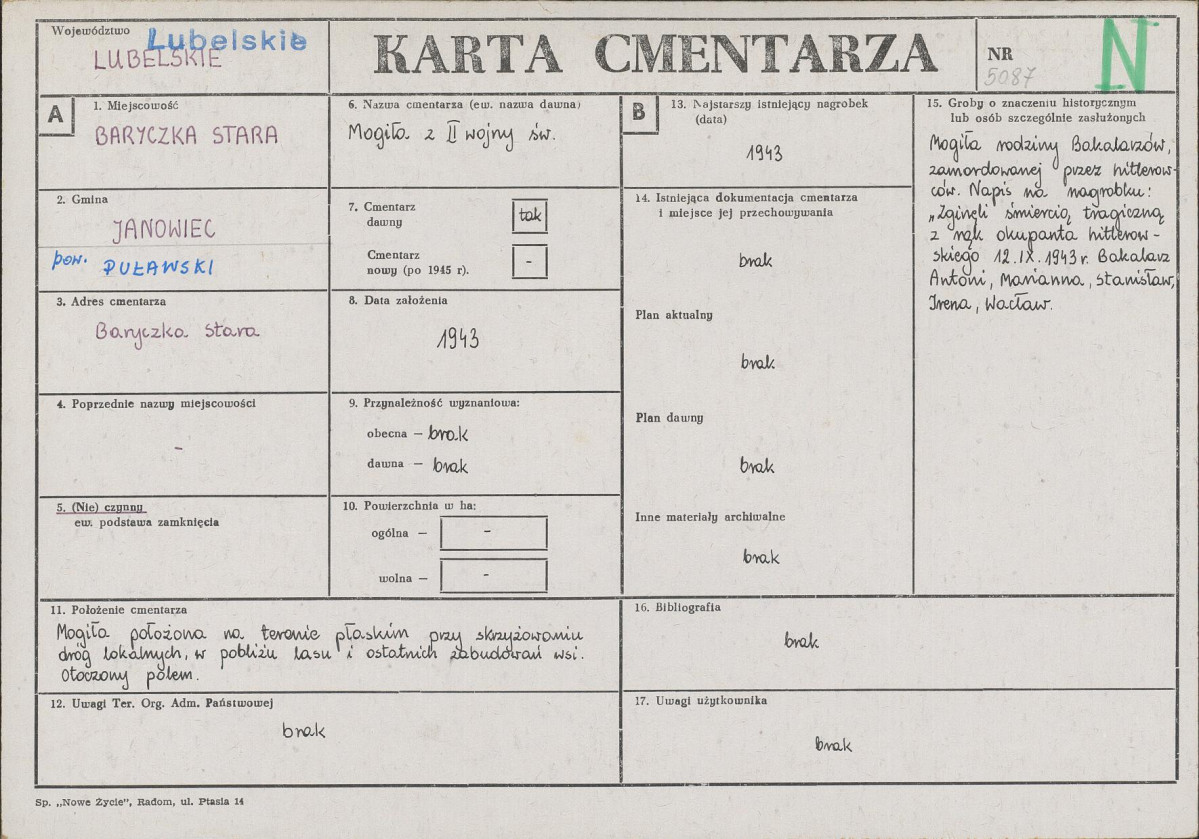 Województwo
Lubelskie
LUBELSKIE
KARTA CMENTARZA
NR
5087
N
A
1. Miejscowość
BARYCZKA STARA
2. Gmina
JANOWIEC
pow. PUŁAWSKI
3. Adres cmentarza
Baryczka Stara
4. Poprzednie nazwy miejscowości
-
5. (Nie) czynny
ew. podstawa zamknięcia
6. Nazwa cmentarza (ew. nazwa dawna)
Mogiła z II wojny św.
7. Cmentarz
dawny
tak
Cmentarz
nowy (po 1945 r.)
-
8. Data założenia
1943
9. Przynależność wyznaniowa:
obecna — brak
dawna — brak
10. Powierzchnia w ha:
ogólna — -
wolna — -
11. Położenie cmentarza
Mogiła położona na terenie płaskim przy skrzyżowaniu
dróg lokalnych, w pobliżu lasu i ostatnich zabudowań wsi.
Otoczony polem.
12. Uwagi Ter. Org. Adm. Państwowej
brak
B
13. Najstarszy istniejący nagrobek
(data)
1943
14. Istniejąca dokumentacja cmentarza
i miejsce jej przechowywania
brak
Plan aktualny
brak
Plan dawny
brak
Inne materiały archiwalne
brak
15. Groby o znaczeniu historycznym
lub osób szczególnie zasłużonych
Mogiła rodziny Bakalarzów,
zamordowanej przez hitlerow-
ców. Napis na nagrobku:
„Zginęli śmiercią tragiczną
z rąk okupanta hitlerow-
skiego 12.IX.1943 r. Bakalarz
Antoni, Marianna, Stanisław,
Irena, Wacław.
16. Bibliografia
brak
17. Uwagi użytkownika
brak
Sp. „Nowe Życie", Radom, ul. Ptasia 14